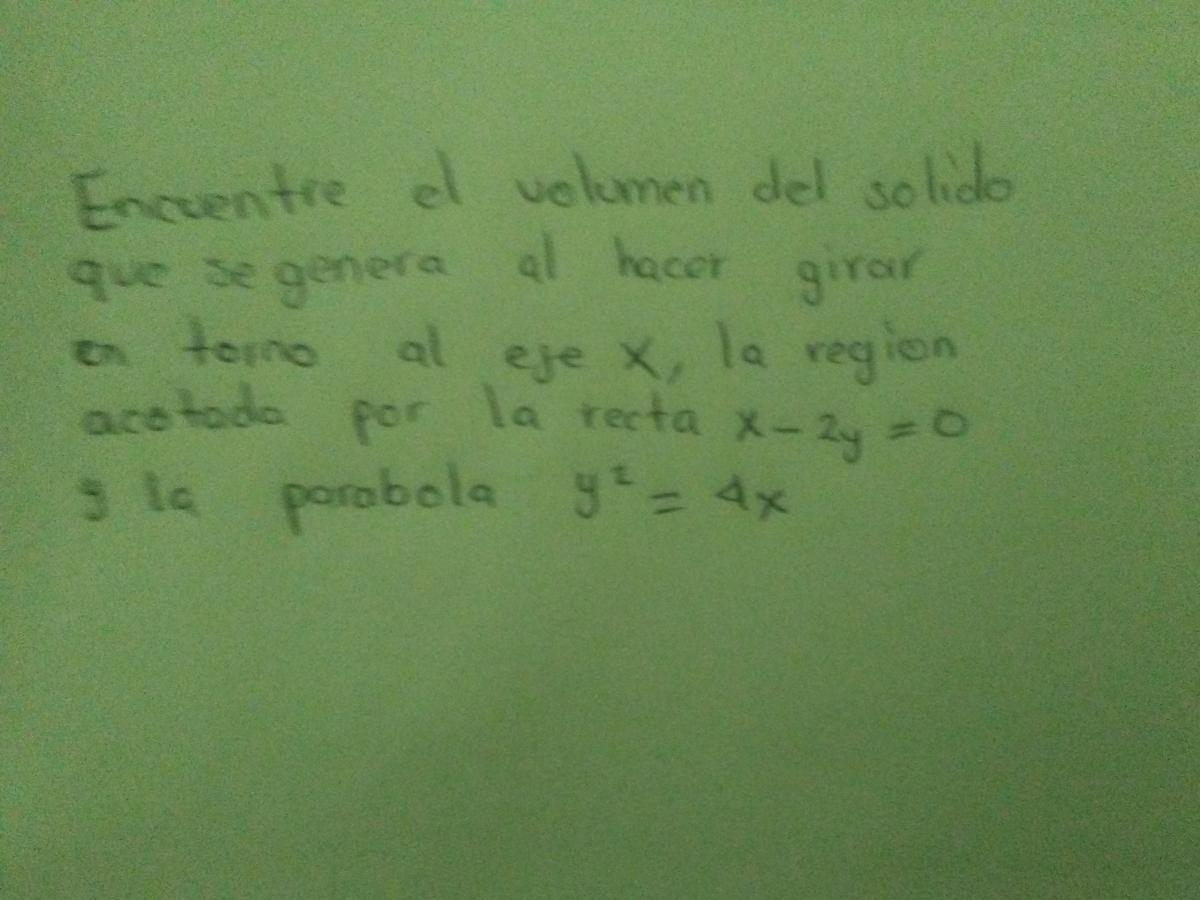 Encuentre el volumen del solido
que se genera al hacer girar
en torno al eje x, la region
acotada por la recta x - 2y = 0
y la parabola y² = 4x